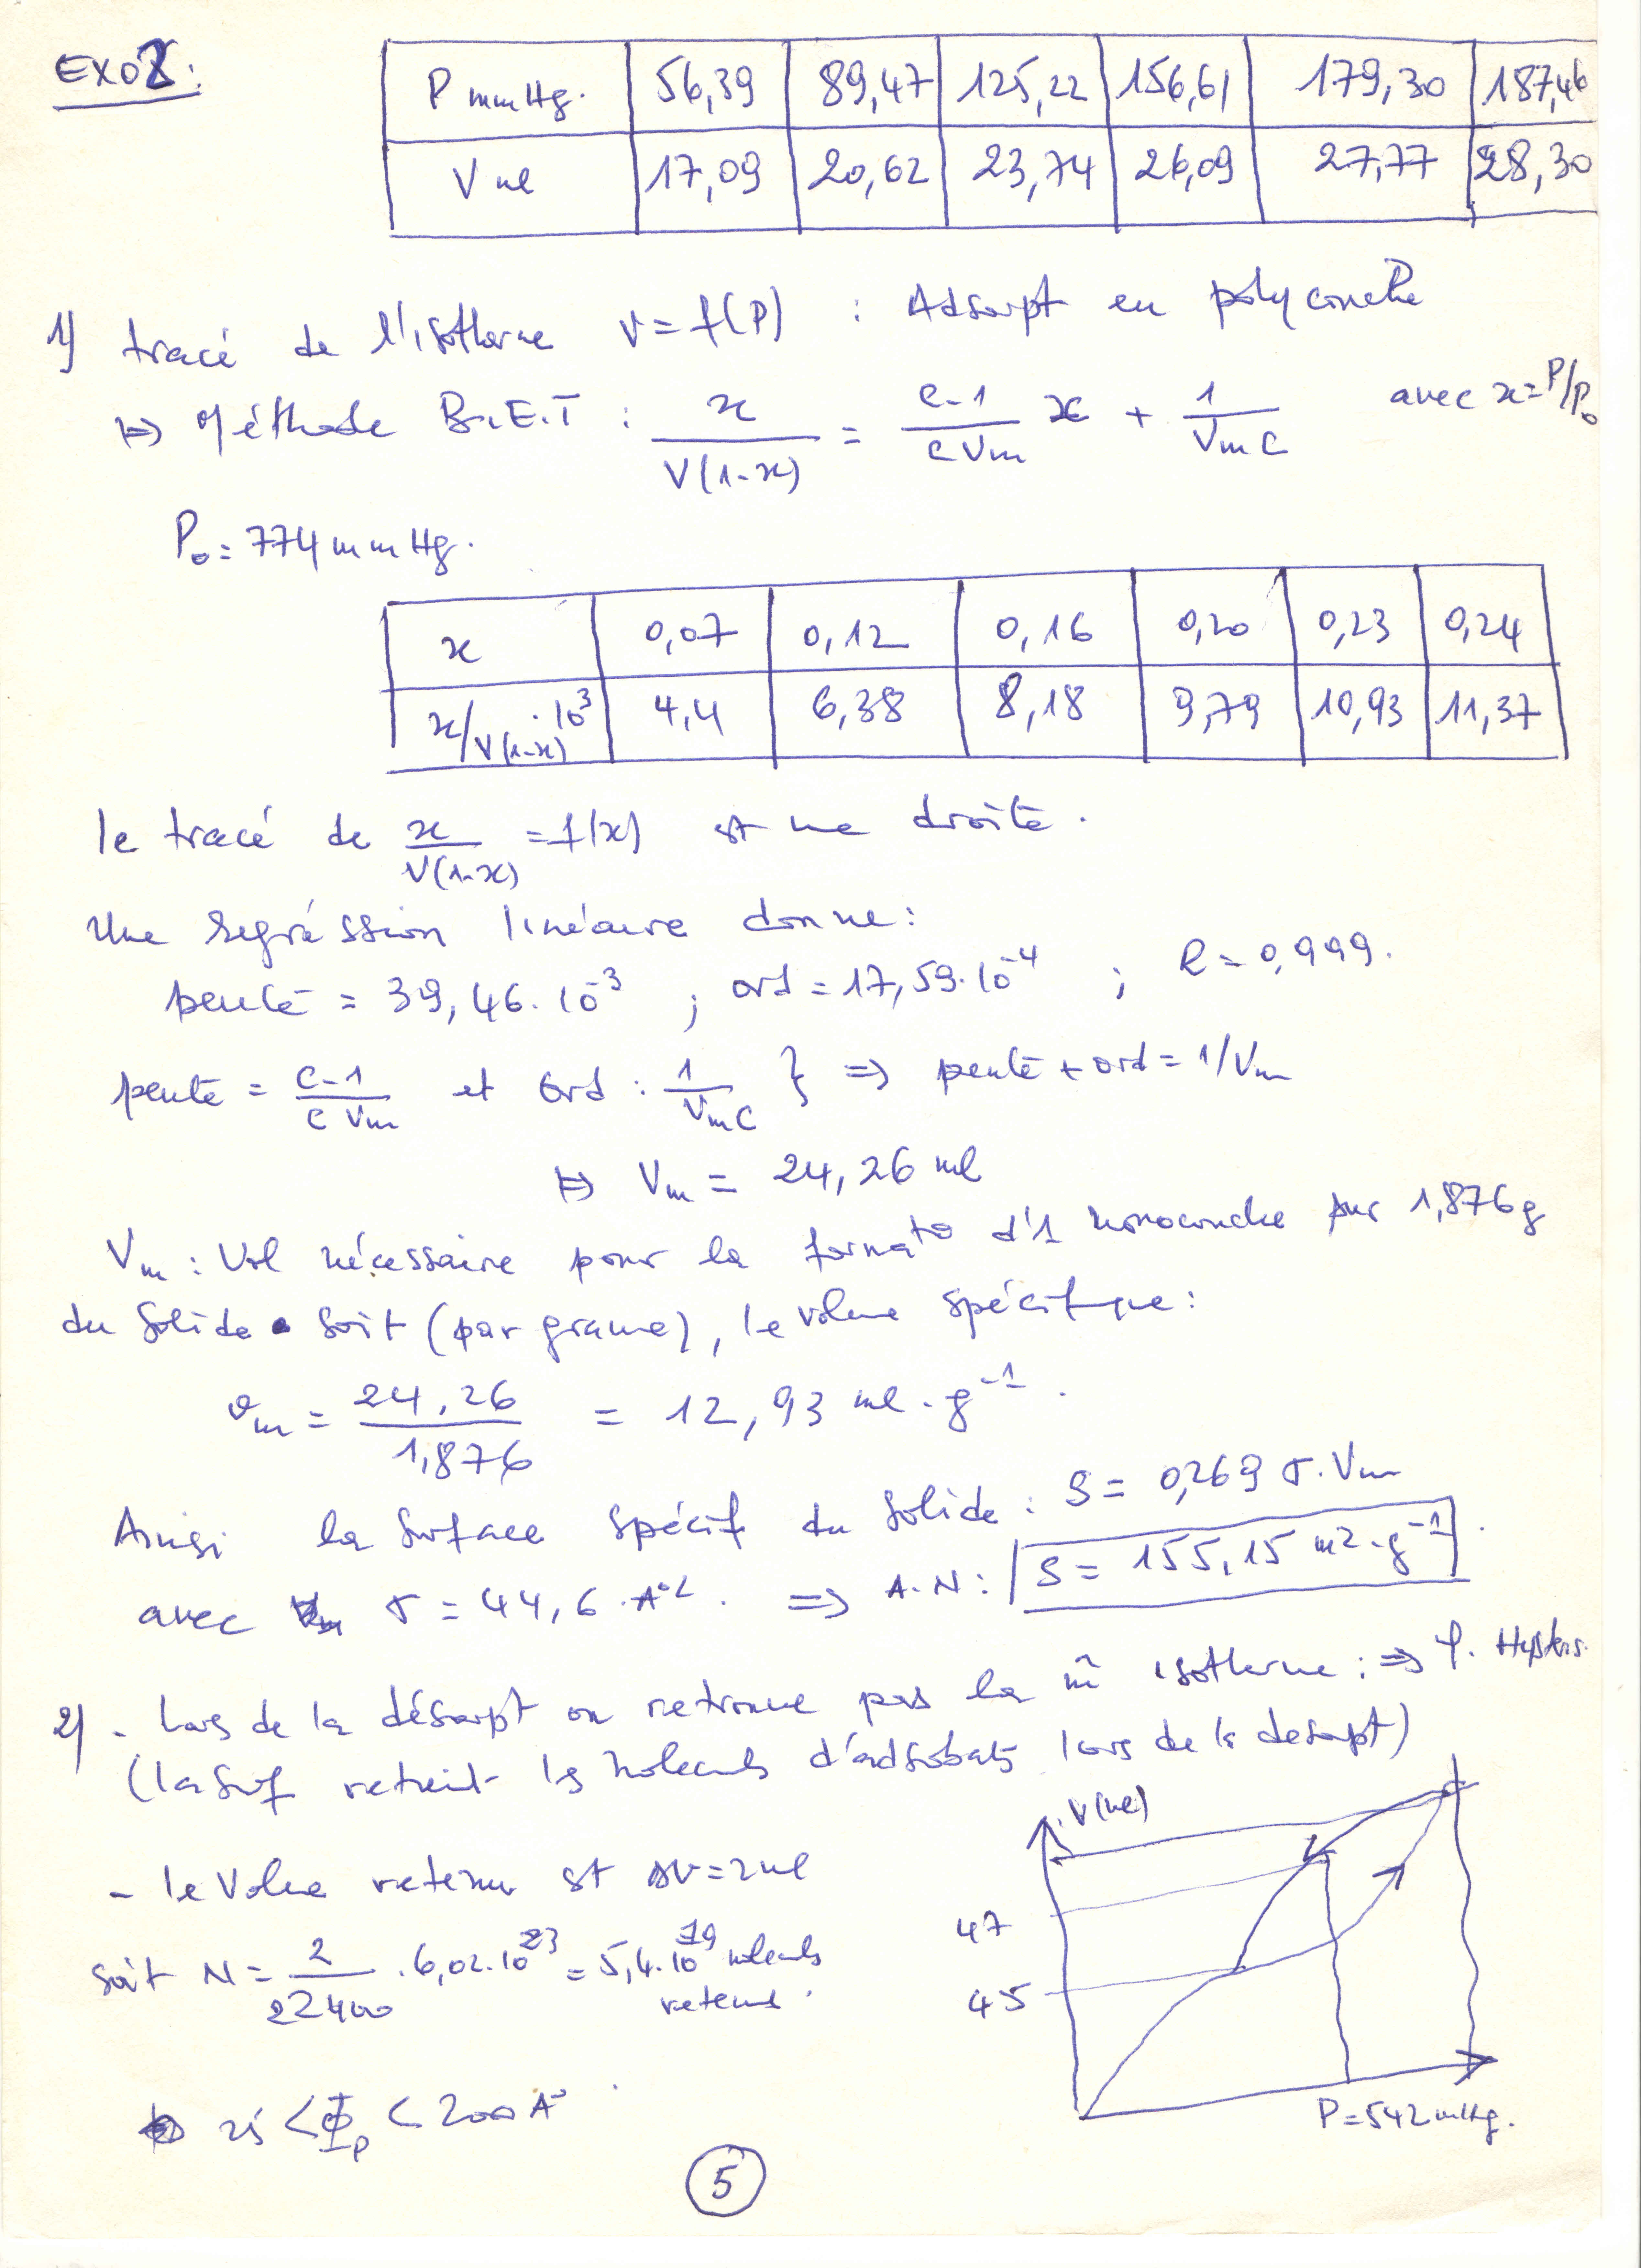 EXO2:
P mmHg. | 56,39 | 89,47 | 125,22 | 156,61 | 179,30 | 187,46
V ml | 17,09 | 20,62 | 23,74 | 26,09 | 27,77 | 28,30
1) tracé de l'isotherme V = f(P) : Adsorpt en polycouche
⟼ Méthode B.E.T : x / V(1-x) = (C-1) / (C Vm) x + 1 / (Vm C) avec x = P/P₀
P₀ = 774 mmHg.
x | 0,07 | 0,12 | 0,16 | 0,20 | 0,23 | 0,24
x/V(1-x) · 10³ | 4,4 | 6,38 | 8,18 | 9,79 | 10,93 | 11,37
le tracé de x / V(1-x) = f(x) est une droite.
Une regréssion linéaire donne:
pente = 39,46. 10⁻³ ; ord = 17,59. 10⁻⁴ ; R = 0,999.
pente = (C-1) / (C Vm) et Ord : 1 / (Vm C) } ⇒ pente + ord = 1/Vm
⟼ Vm = 24,26 ml
Vm : Vol nécessaire pour la formato d'1 monocouche pur 1,876g
du solide soit (par gramme), le volume spécifique:
vm = 24,26 / 1,876 = 12,93 ml.g⁻¹.
Ainsi la surface spécif du solide : S = 0,269 σ.Vm
avec σ = 44,6 A°². ⇒ A.N: S = 155,15 m2.g⁻¹.
2) - Lors de la désorpt on retrouve pas la m̂ isotherme : ⇒ f. Hystérs.
(la surf retient les molecules d'adsorbats lors de la desorpt)
V(ml)
- le Volume retenu est ΔV = 2ml
47
soit N = 2 / 22400 . 6,02. 10²³ = 5,4. 10¹⁹ molecules
retenues.
45
< Φp < 200 A°
P = 542 mmHg.
5